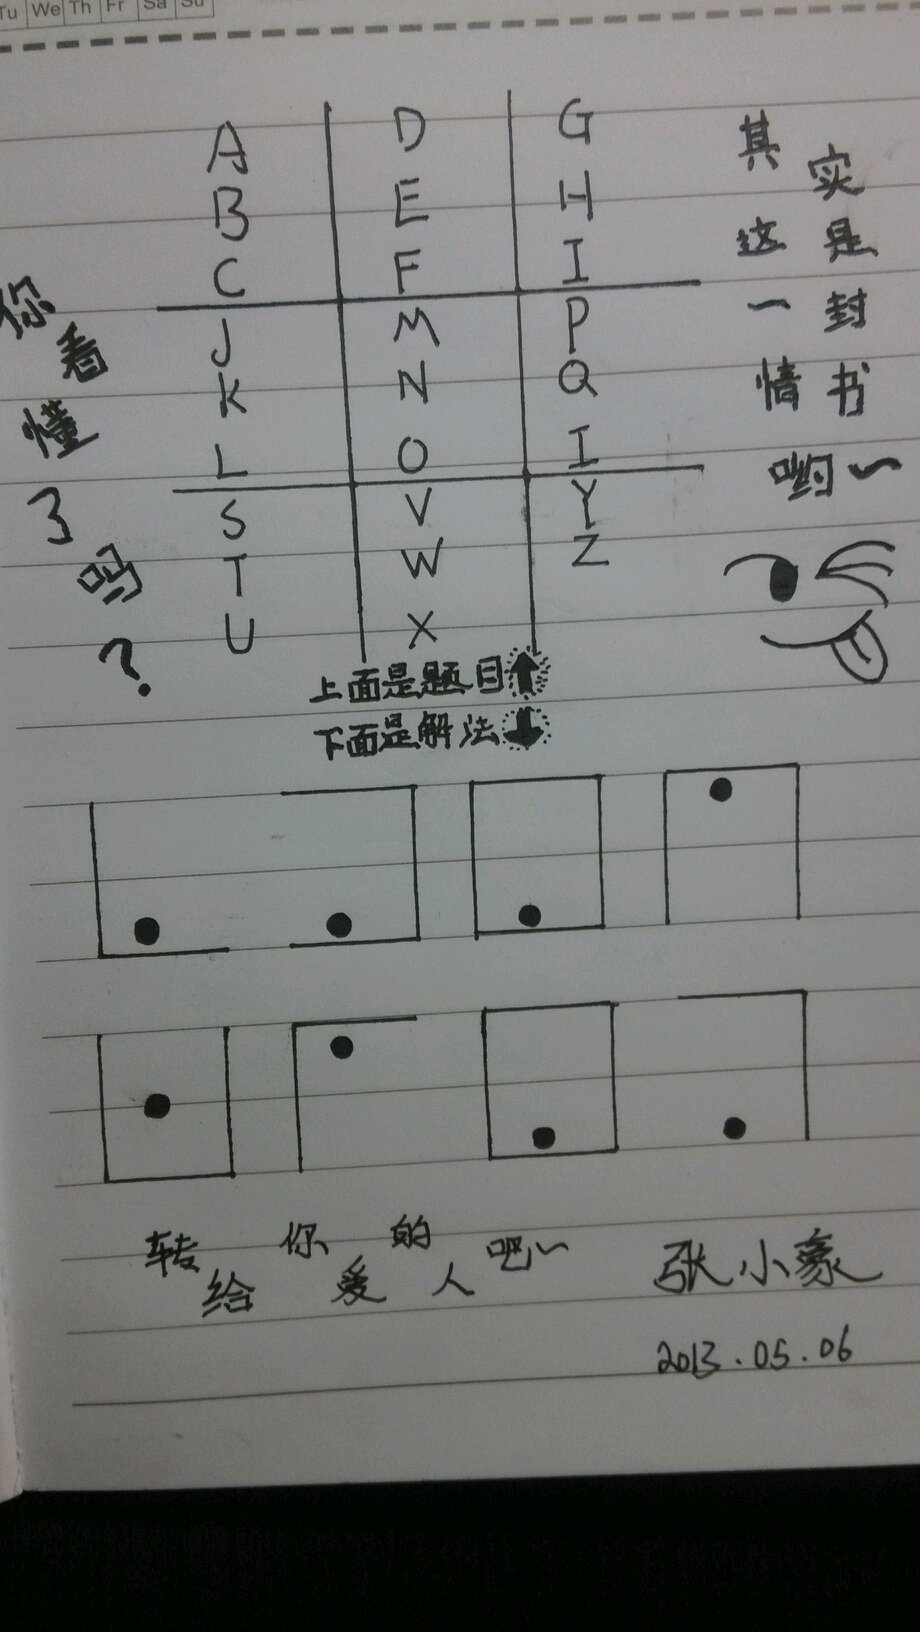 Tu We Th Fr Sa Su
A D G
B E H
C F I
J M P
K N Q
L O I
S V Y
T W Z
U X
你看懂了吗?
其实这是一封情书哟~
上面是题目
下面是解法
转给你的爱人吧~
张小豪
2013.05.06